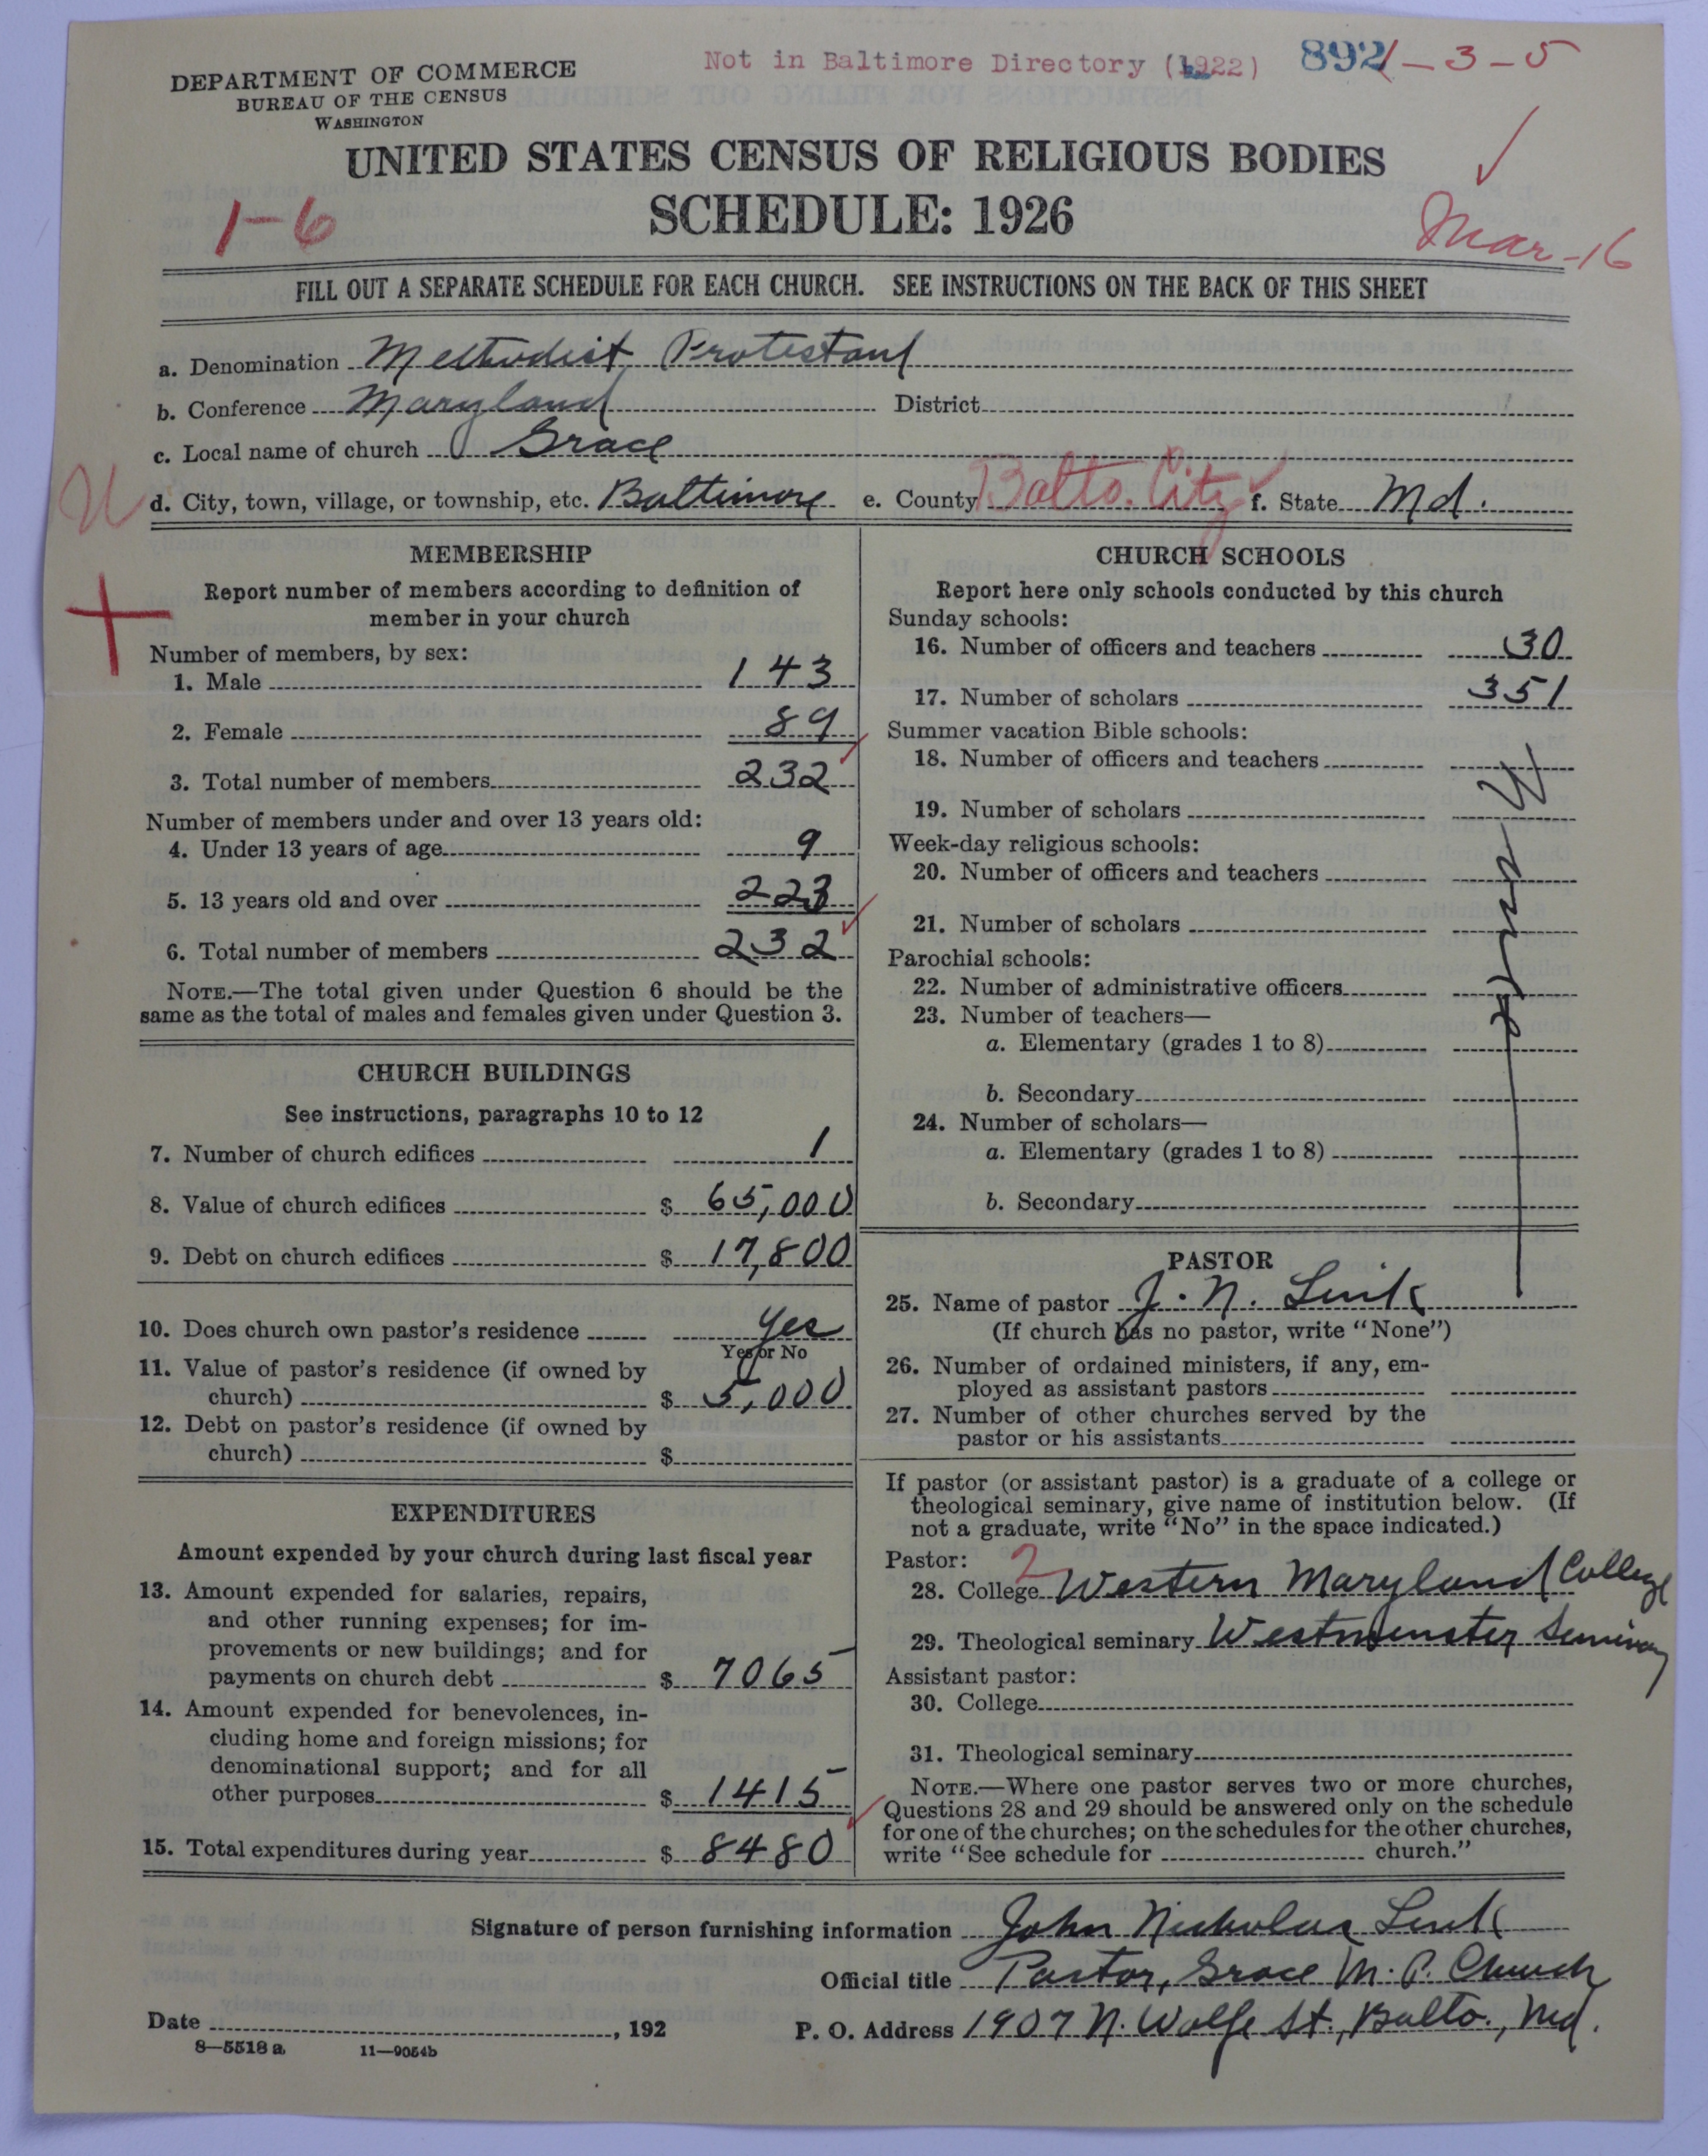 Not in Baltimore Directory (1922) 892 1-3-5
DEPARTMENT OF COMMERCE
BUREAU OF THE CENSUS
WASHINGTON
UNITED STATES CENSUS OF RELIGIOUS BODIES
SCHEDULE: 1926
1-6
Mar-16
FILL OUT A SEPARATE SCHEDULE FOR EACH CHURCH. SEE INSTRUCTIONS ON THE BACK OF THIS SHEET
a. Denomination Methodist Protestant
b. Conference Maryland District
c. Local name of church Grace
d. City, town, village, or township, etc. Baltimore e. County Balto. City f. State Md.
MEMBERSHIP
Report number of members according to definition of
member in your church
Number of members, by sex:
1. Male 143
2. Female 89
3. Total number of members 232
Number of members under and over 13 years old:
4. Under 13 years of age 9
5. 13 years old and over 223
6. Total number of members 232
NOTE.—The total given under Question 6 should be the
same as the total of males and females given under Question 3.
CHURCH BUILDINGS
See instructions, paragraphs 10 to 12
7. Number of church edifices 1
8. Value of church edifices $ 65,000
9. Debt on church edifices $ 17,800
10. Does church own pastor's residence Yes
Yes or No
11. Value of pastor's residence (if owned by
church) $ 5,000
12. Debt on pastor's residence (if owned by
church) $
EXPENDITURES
Amount expended by your church during last fiscal year
13. Amount expended for salaries, repairs,
and other running expenses; for im-
provements or new buildings; and for
payments on church debt $ 7065
14. Amount expended for benevolences, in-
cluding home and foreign missions; for
denominational support; and for all
other purposes $ 1415
15. Total expenditures during year $ 8480
CHURCH SCHOOLS
Report here only schools conducted by this church
Sunday schools:
16. Number of officers and teachers 30
17. Number of scholars 351
Summer vacation Bible schools:
18. Number of officers and teachers
19. Number of scholars
Week-day religious schools:
20. Number of officers and teachers
21. Number of scholars
Parochial schools:
22. Number of administrative officers
23. Number of teachers—
a. Elementary (grades 1 to 8)
b. Secondary
24. Number of scholars—
a. Elementary (grades 1 to 8)
b. Secondary
PASTOR
25. Name of pastor J. N. Link
(If church has no pastor, write "None")
26. Number of ordained ministers, if any, em-
ployed as assistant pastors
27. Number of other churches served by the
pastor or his assistants
If pastor (or assistant pastor) is a graduate of a college or
theological seminary, give name of institution below. (If
not a graduate, write "No" in the space indicated.)
Pastor: 2
28. College Western Maryland College
29. Theological seminary Westminster Seminary
Assistant pastor:
30. College
31. Theological seminary
NOTE.—Where one pastor serves two or more churches,
Questions 28 and 29 should be answered only on the schedule
for one of the churches; on the schedules for the other churches,
write "See schedule for church."
Signature of person furnishing information John Nicholas Link
Official title Pastor, Grace M. P. Church
Date , 192 P. O. Address 1907 N. Wolfe St., Balto., Md.
8—5518 a 11—9054b